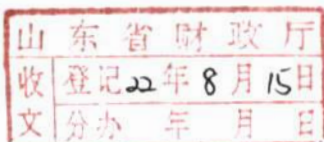 山东省财政厅
收 登记22年8月15日
文 分办 年 月 日